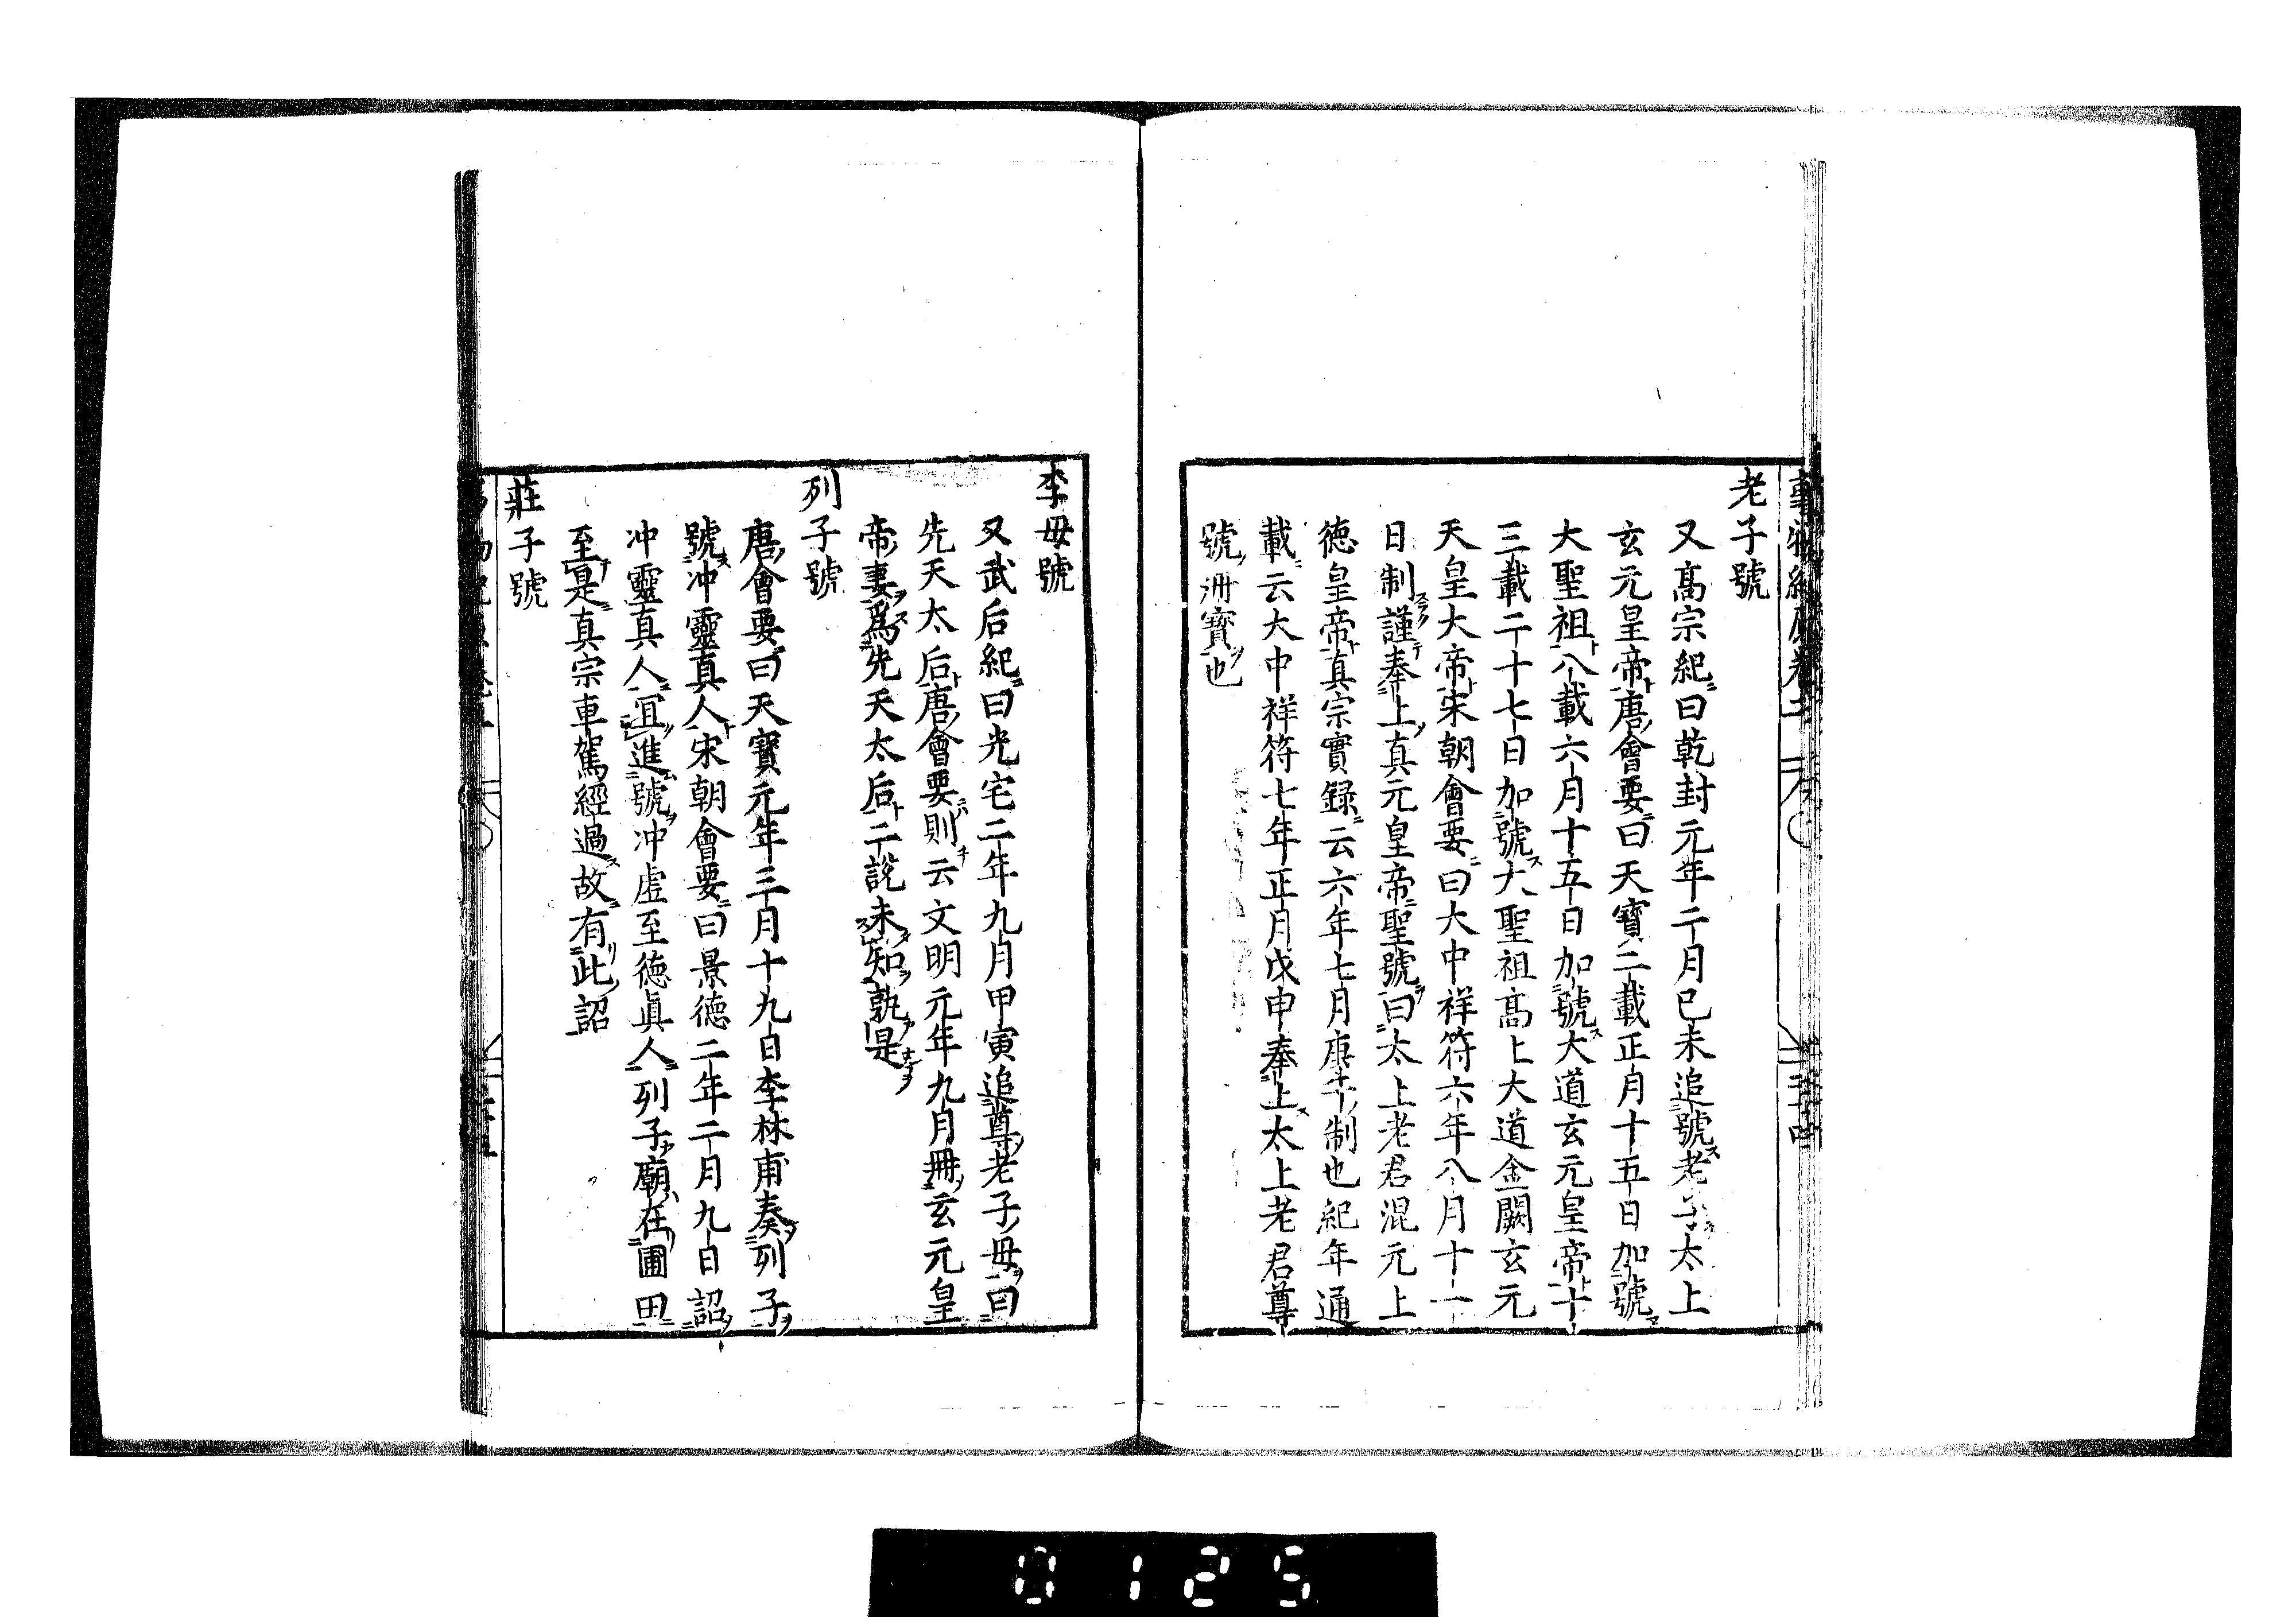 老子號
又高宗紀曰乾封元年二月巳未追號老子太上
玄元皇帝唐會要曰天寶二載正月十五日加號
大聖祖八載六月十五日加號大道玄元皇帝十
三載二十七日加號大聖祖高上大道金闕玄元
天皇大帝宋朝會要曰大中祥符六年八月十一
日制謹奉上真元皇帝聖號曰太上老君混元上
德皇帝真宗實録云六年七月庚午制也紀年通
載云大中祥符七年正月戊申奉上太上老君尊
號冊寶也
李母號
又武后紀曰光宅二年九月甲寅追尊老子母曰
先天太后唐會要則云文明元年九月冊玄元皇
帝妻爲先天太后二説未知孰是
列子號
唐會要曰天寶元年三月十九日李林甫奏列子
號冲靈真人宋朝會要曰景德二年二月九日詔
冲靈真人宜進號冲虛至德眞人列子廟在圃田
至是真宗車駕經過故有此詔
莊子號
0125